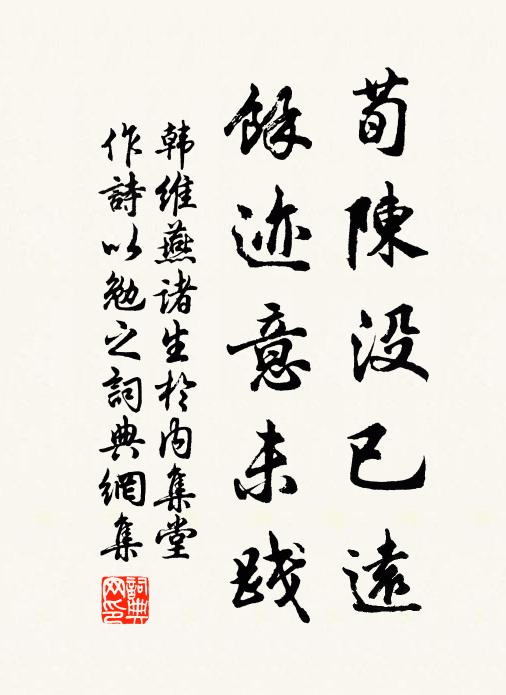 荀陳没已遠
餘迹意未践
韩維燕諸生於内集堂
作詩以勉之詞典網集
詞典网印